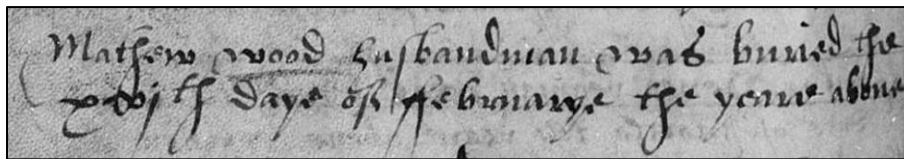 Mathew wood husbandman was buried the
xvith daye of februarye the yeare above